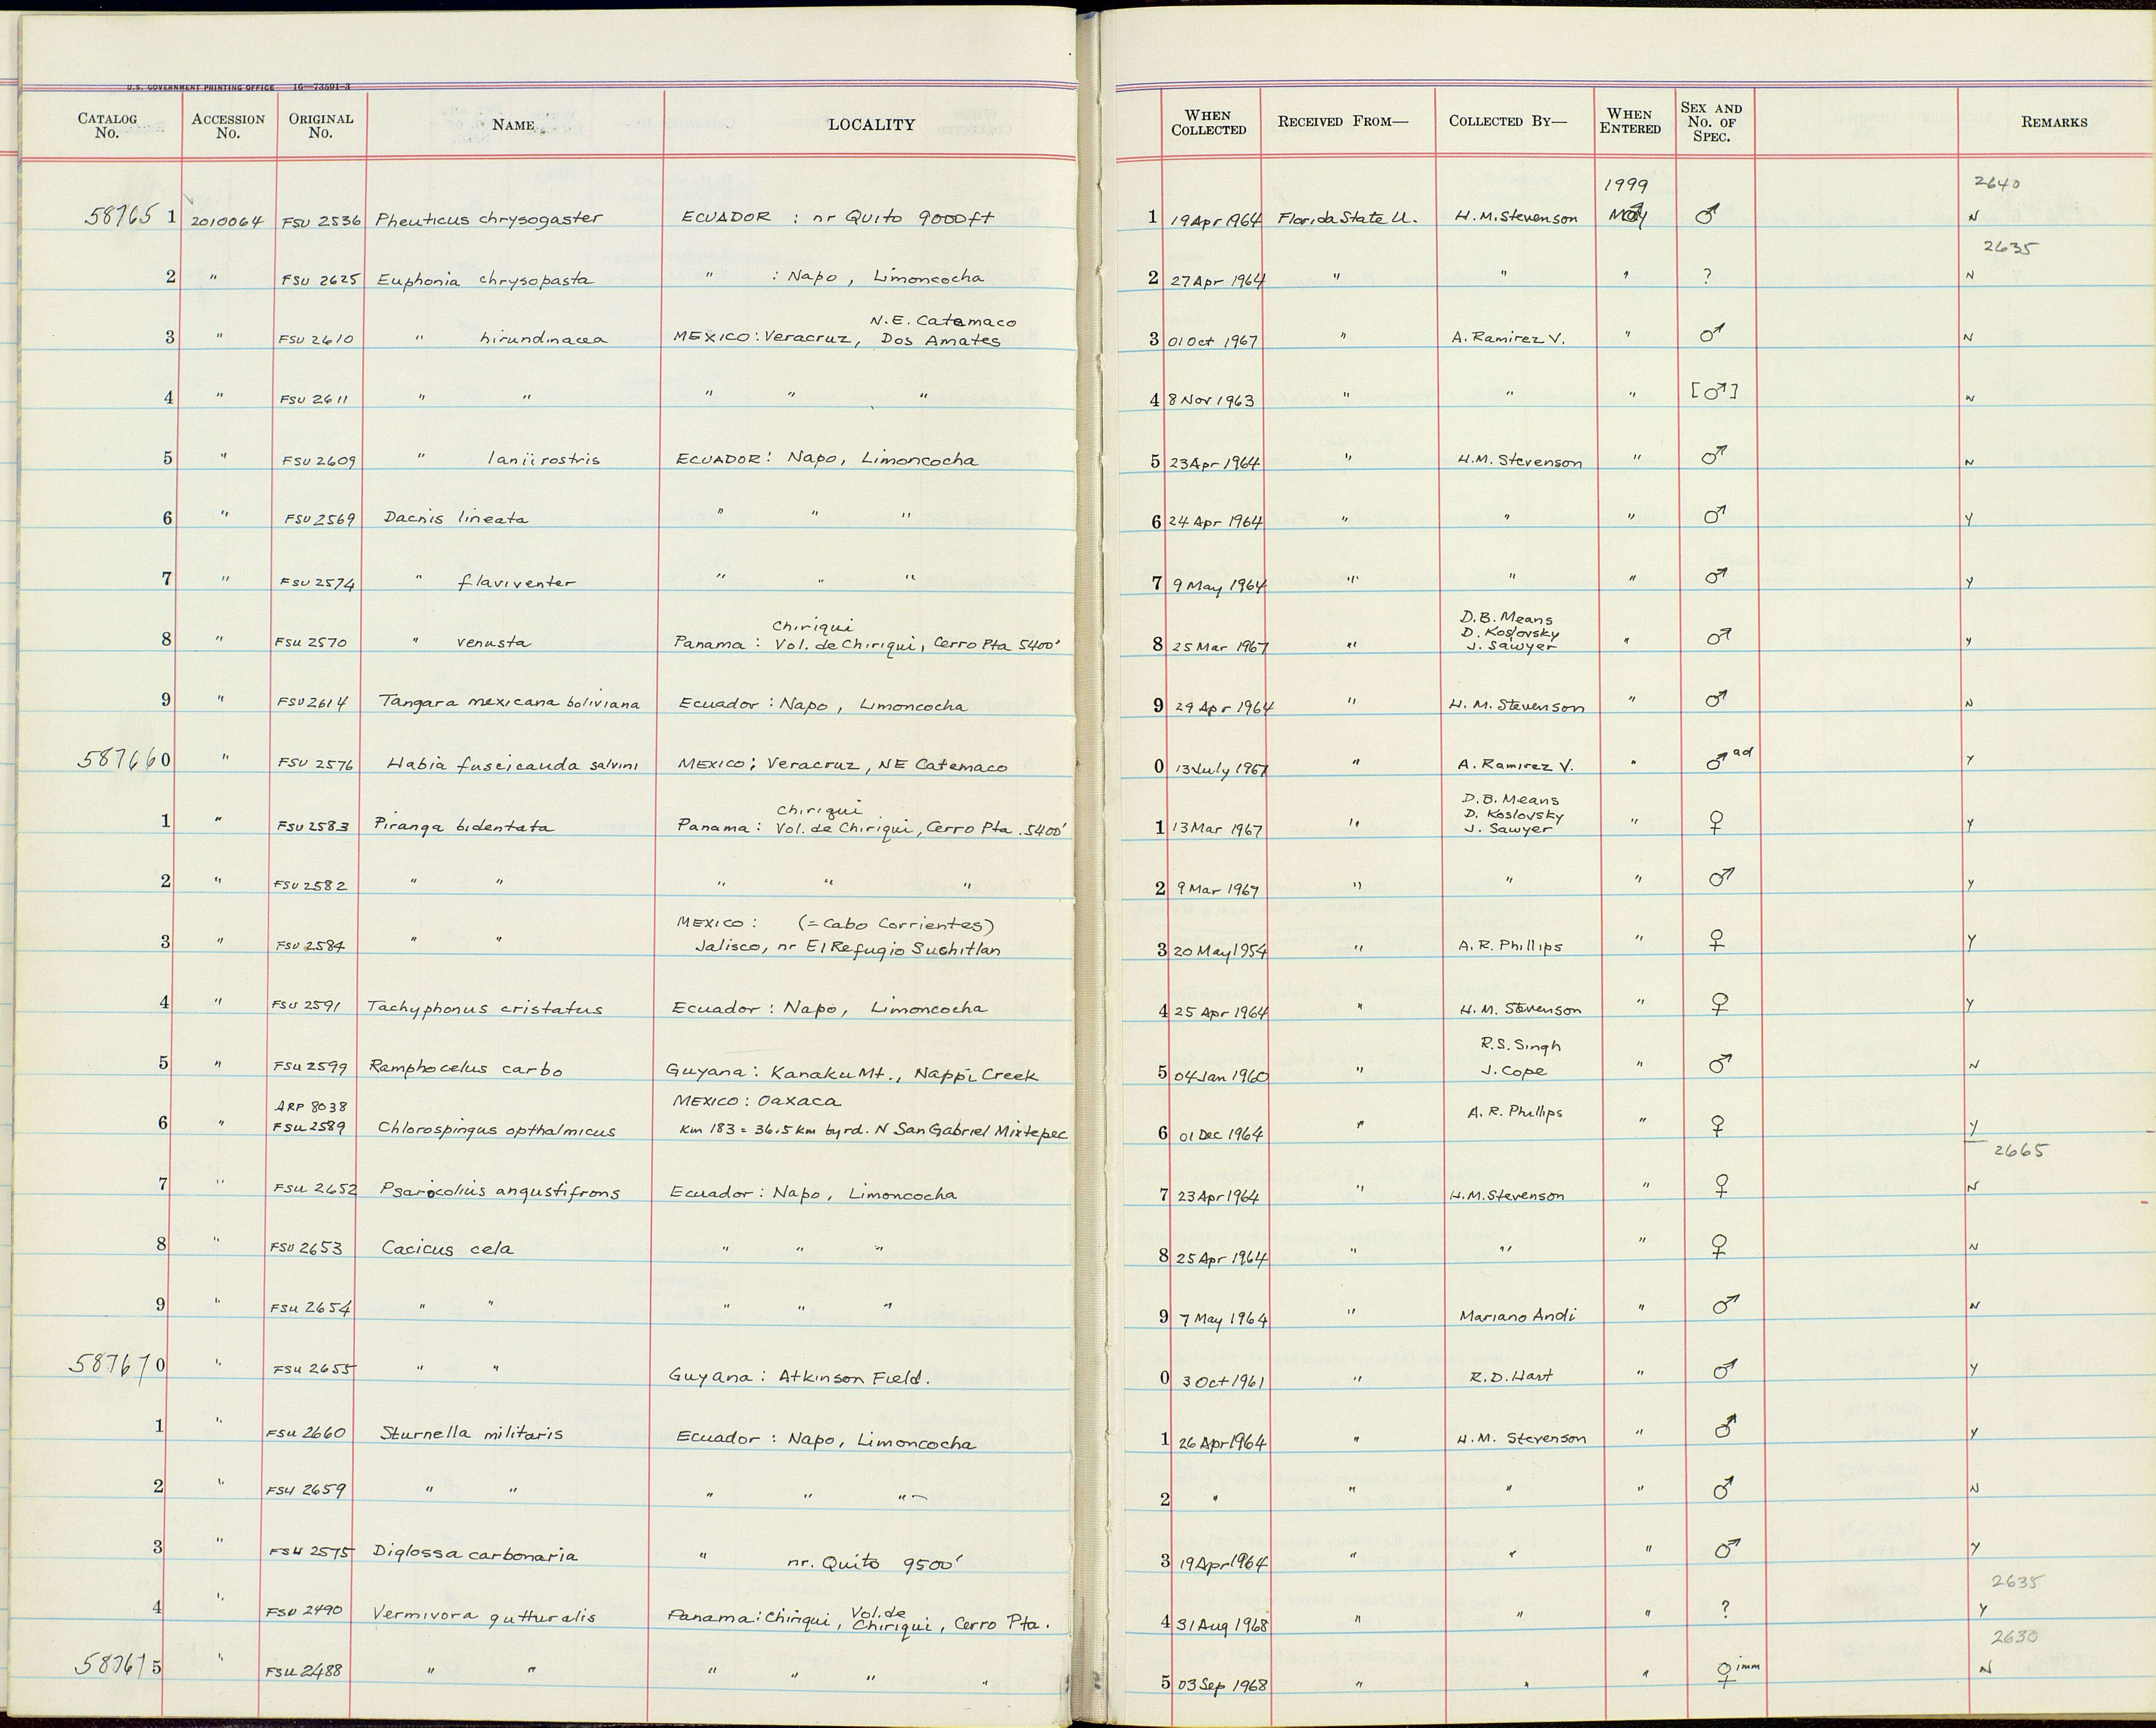 U.S. GOVERNMENT PRINTING OFFICE 16—73591-3
CATALOG No. ACCESSION No. ORIGINAL No. NAME LOCALITY WHEN COLLECTED RECEIVED FROM— COLLECTED BY— WHEN ENTERED SEX AND No. OF SPEC. REMARKS
1999 2640
58765 1 2010064 FSU 2536 Pheuticus chrysogaster ECUADOR : nr Quito 9000ft 1 19 Apr 1964 Florida State U. H.M. Stevenson May ♂ N
2635
2 " FSU 2625 Euphonia chrysopasta " : Napo, Limoncocha 2 27 Apr 1964 " " " ? N
N.E. Catemaco
3 " FSU 2610 " hirundinacea MEXICO: Veracruz, Dos Amates 3 01 Oct 1967 " A. Ramirez V. " ♂ N
4 " FSU 2611 " " " " " 4 8 Nov 1963 " " " [♂] N
5 " FSU 2609 " laniirostris ECUADOR: Napo, Limoncocha 5 23 Apr 1964 " H.M. Stevenson " ♂ N
6 " FSU 2569 Dacnis lineata " " " 6 24 Apr 1964 " " " ♂ Y
7 " FSU 2574 " flaviventer " " " 7 9 May 1964 " " " ♂ Y
Chiriqui D.B. Means
D. Koslovsky
8 " FSU 2570 " venusta Panama : Vol. de Chiriqui, Cerro Pta 5400' 8 25 Mar 1967 " J. Sawyer " ♂ Y
9 " FSU 2614 Tangara mexicana boliviana Ecuador : Napo, Limoncocha 9 29 Apr 1964 " H. M. Stevenson " ♂ N
587660 " FSU 2576 Habia fuscicauda salvini MEXICO: Veracruz, NE Catemaco 0 13 July 1967 " A. Ramirez V. " ♂ ad Y
Chiriqui D.B. Means
D. Koslovsky
1 " FSU 2583 Piranga bidentata Panama : Vol. de Chiriqui, Cerro Pta. 5400' 1 13 Mar 1967 " J. Sawyer " ♀ Y
2 " FSU 2582 " " " " " 2 9 Mar 1967 " " " ♂ Y
MEXICO : (= Cabo Corrientes)
3 " FSU 2584 " " Jalisco, nr El Refugio Suchitlan 3 20 May 1954 " A. R. Phillips " ♀ Y
4 " FSU 2591 Tachyphonus cristatus Ecuador : Napo, Limoncocha 4 25 Apr 1964 " H.M. Stevenson " ♀ Y
R.S. Singh
5 " FSU 2599 Ramphocelus carbo Guyana : Kanaku Mt., Nappi Creek 5 04 Jan 1960 " J. Cope " ♂ N
ARP 8038 MEXICO : Oaxaca A. R. Phillips
6 " FSU 2589 Chlorospingus opthalmicus Km 183 = 36.5 km by rd. N San Gabriel Mixtepec 6 01 Dec 1964 " " ♀ Y
2665
7 " FSU 2652 Psarocolius angustifrons Ecuador : Napo, Limoncocha 7 23 Apr 1964 " H.M. Stevenson " ♀ N
8 " FSU 2653 Cacicus cela " " " 8 25 Apr 1964 " " " ♀ N
9 " FSU 2654 " " " " " 9 7 May 1964 " Mariano Andi " ♂ N
587670 " FSU 2655 " " Guyana : Atkinson Field. 0 3 Oct 1961 " R.D. Hart " ♂ Y
1 " FSU 2660 Sturnella militaris Ecuador : Napo, Limoncocha 1 26 Apr 1964 " H.M. Stevenson " ♂ Y
2 " FSU 2659 " " " " " 2 " " " " ♂ N
3 " FSU 2575 Diglossa carbonaria " nr. Quito 9500' 3 19 Apr 1964 " " " ♂ Y
2635
Vol. de
4 " FSU 2490 Vermivora gutturalis Panama : Chiriqui, Chiriqui, Cerro Pta. 4 31 Aug 1968 " " " ? Y
2630
587675 " FSU 2488 " " " " " " 5 03 Sep 1968 " " " ♀ imm N